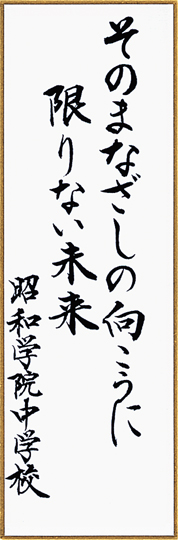 そのまなざしの向こうに
限りない未来
昭和学院中学校